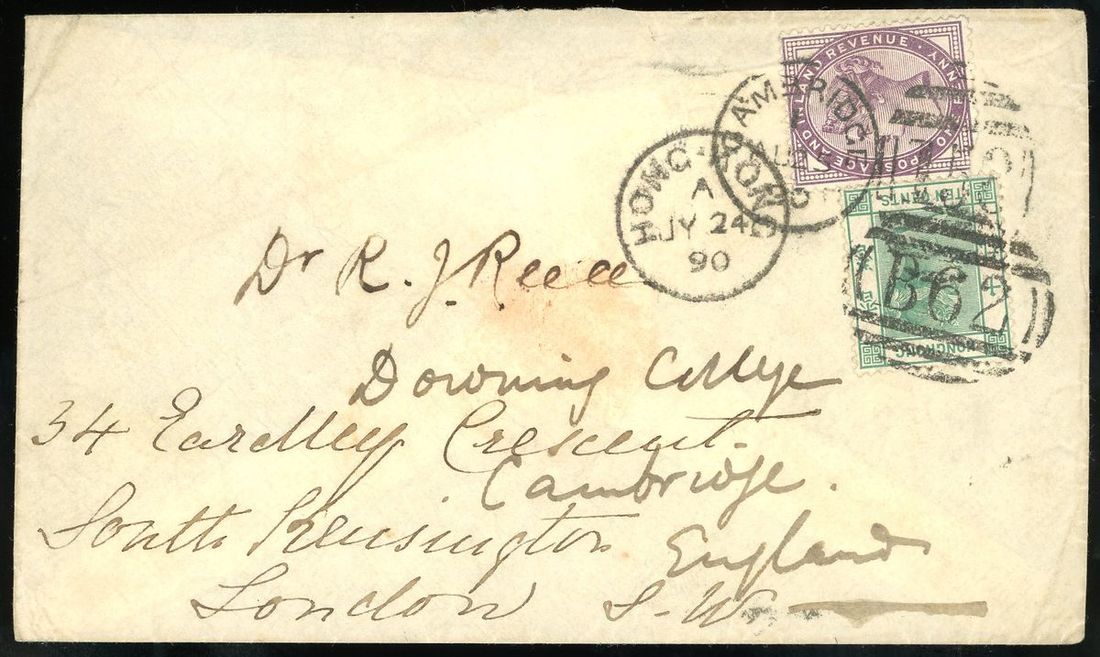 POSTAGE AND INLAND REVENUE · ONE PENNY
CAMBRIDGE
AU
90
HONG-KONG
A
JY 24
90
TEN CENTS
HONGKONG
B62
Dr R. J. Reece
Downing College
34 Eardley Crescent.
Cambridge.
South Kensington
England
London S-W.